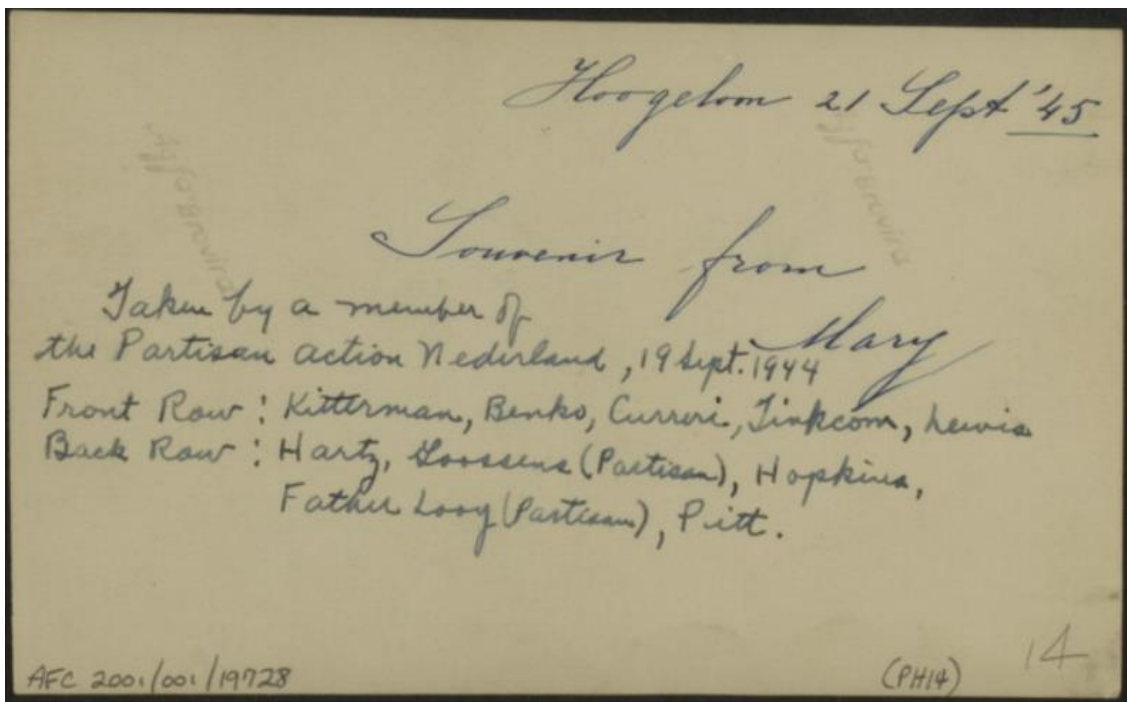 Hoogeloon 21 Sept '45
Souvenir from
Mary
Taken by a member of
the Partisan action Nederland, 19 Sept. 1944
Front Row: Kitterman, Benko, Curreri, Tinkcom, Lewis
Back Row: Hartz, Goossens (Partisan), Hopkins,
Father Looy (Partisan), Pitt.
14
AFC 2001/001/19728
(PH14)